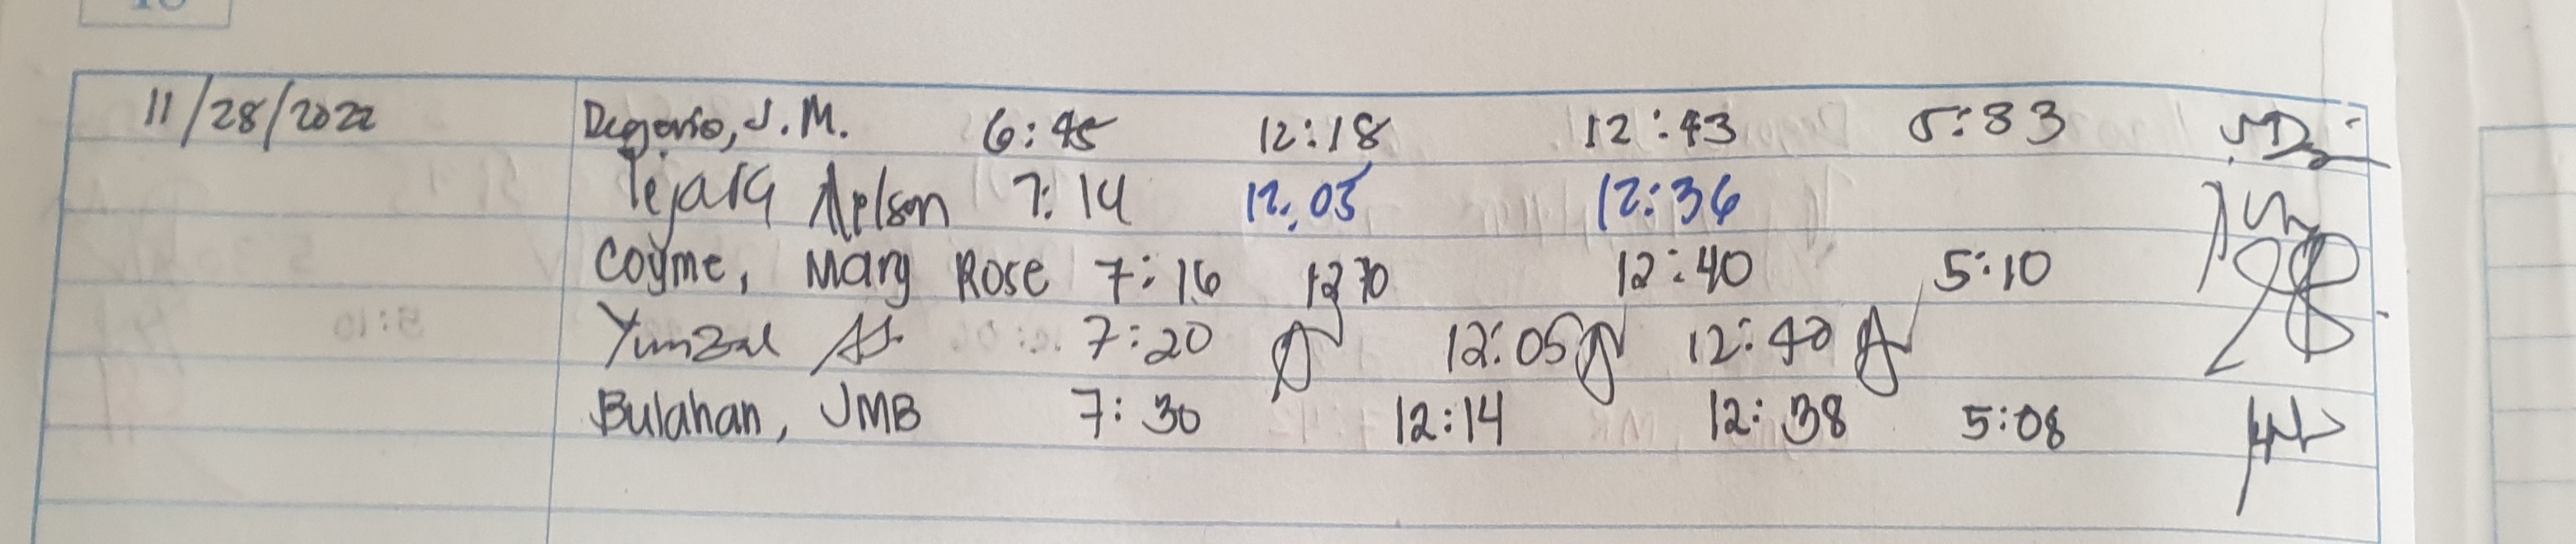 11/28/2022 Degorio, J.M. 6:45 12:18 12:43 5:33
Tejara Aelson 7:14 12:05 12:36
Coyme, Mary Rose 7:16 12:40 5:10
Yunzal 7:20 12:05 12:40
Bulahan, JMB 7:30 12:14 12:38 5:08